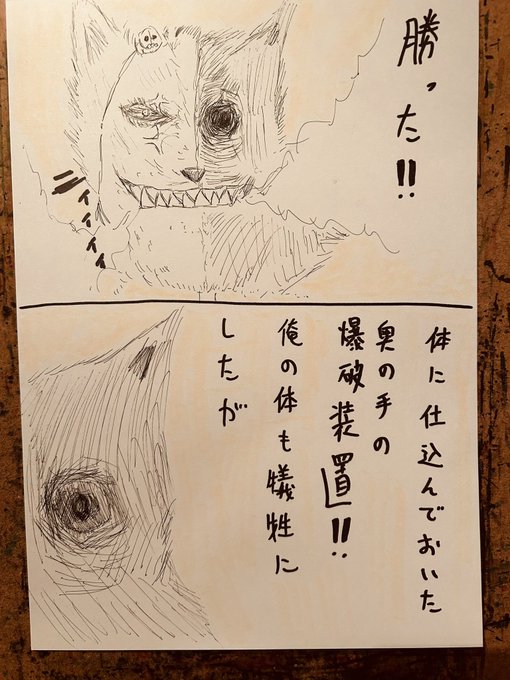 勝った!!
ニィィィィ
体に仕込んでおいた
奥の手の
爆破装置!!
俺の体も犠牲に
したが